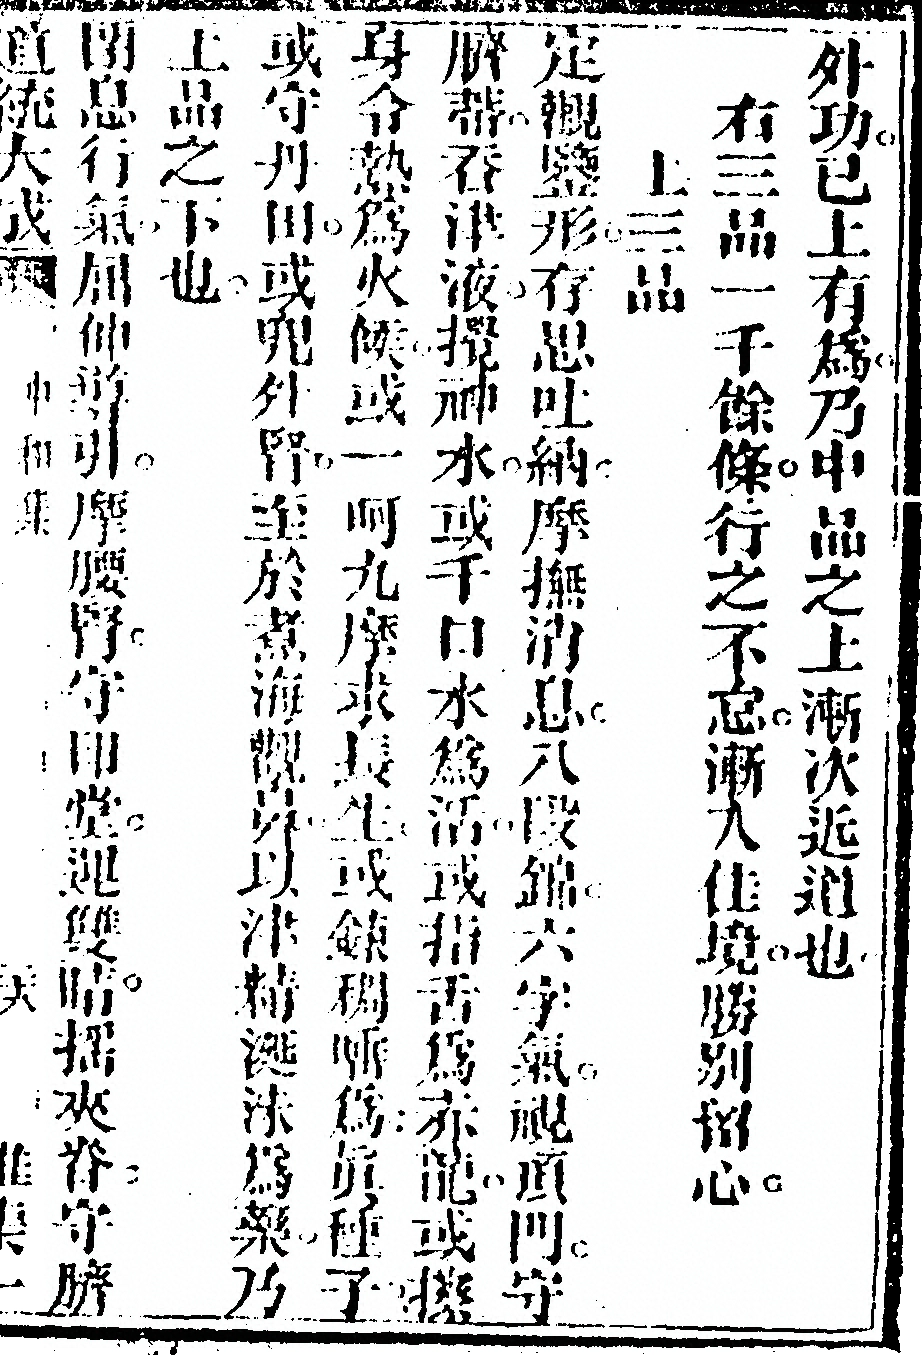 外功已上有爲乃中品之上漸次近道也
右三品一千餘條行之不怠漸入佳境勝別留心
上三品
定觀鑒形存思吐納摩撫消息八段錦六字氣視頂門守
臍蔕吞津液攪神水或千口水爲活或指舌爲赤龍或擦
身令熱爲火候或一呵九摩求長生或鍊稠唾爲眞種子
或守丹田或兜外腎至於煮海觀鼻以津精涎沫爲藥乃
上品之下也
閉息行氣屈伸導引摩腰腎守印堂運雙睛搖夾脊守臍
道統大成 中和集